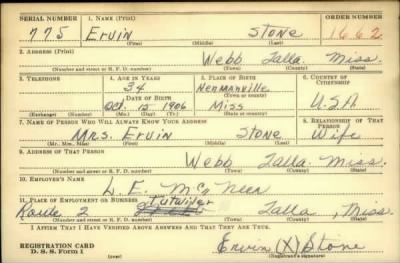 SERIAL NUMBER 1. NAME (Print) ORDER NUMBER
775 Ervin Stone 1662
(First) (Middle) (Last)
2. ADDRESS (Print)
Webb Talla. Miss.
(Number and street or R. F. D. number) (Town) (County) (State)
3. TELEPHONE 4. AGE IN YEARS 5. PLACE OF BIRTH 6. COUNTRY OF CITIZENSHIP
34 Hermanville
DATE OF BIRTH (Town or county)
Oct. 15 1906 Miss U.S.A
(Exchange) (Number) (Mo.) (Day) (Yr.) (State or country)
7. NAME OF PERSON WHO WILL ALWAYS KNOW YOUR ADDRESS 8. RELATIONSHIP OF THAT PERSON
Mrs. Ervin Stone Wife
(Mr., Mrs., Miss) (First) (Middle) (Last)
9. ADDRESS OF THAT PERSON
Webb Talla. Miss.
(Number and street or R. F. D. number) (Town) (County) (State)
10. EMPLOYER'S NAME
11. PLACE OF EMPLOYMENT OR BUSINESS
Tutwiler
Route 2 Talla, Miss.
(Number and street or R. F. D. number) (Town) (County) (State)
I AFFIRM THAT I HAVE VERIFIED ABOVE ANSWERS AND THAT THEY ARE TRUE.
REGISTRATION CARD
D. S. S. Form 1
Ervin (X) Stone
(Registrant's signature)